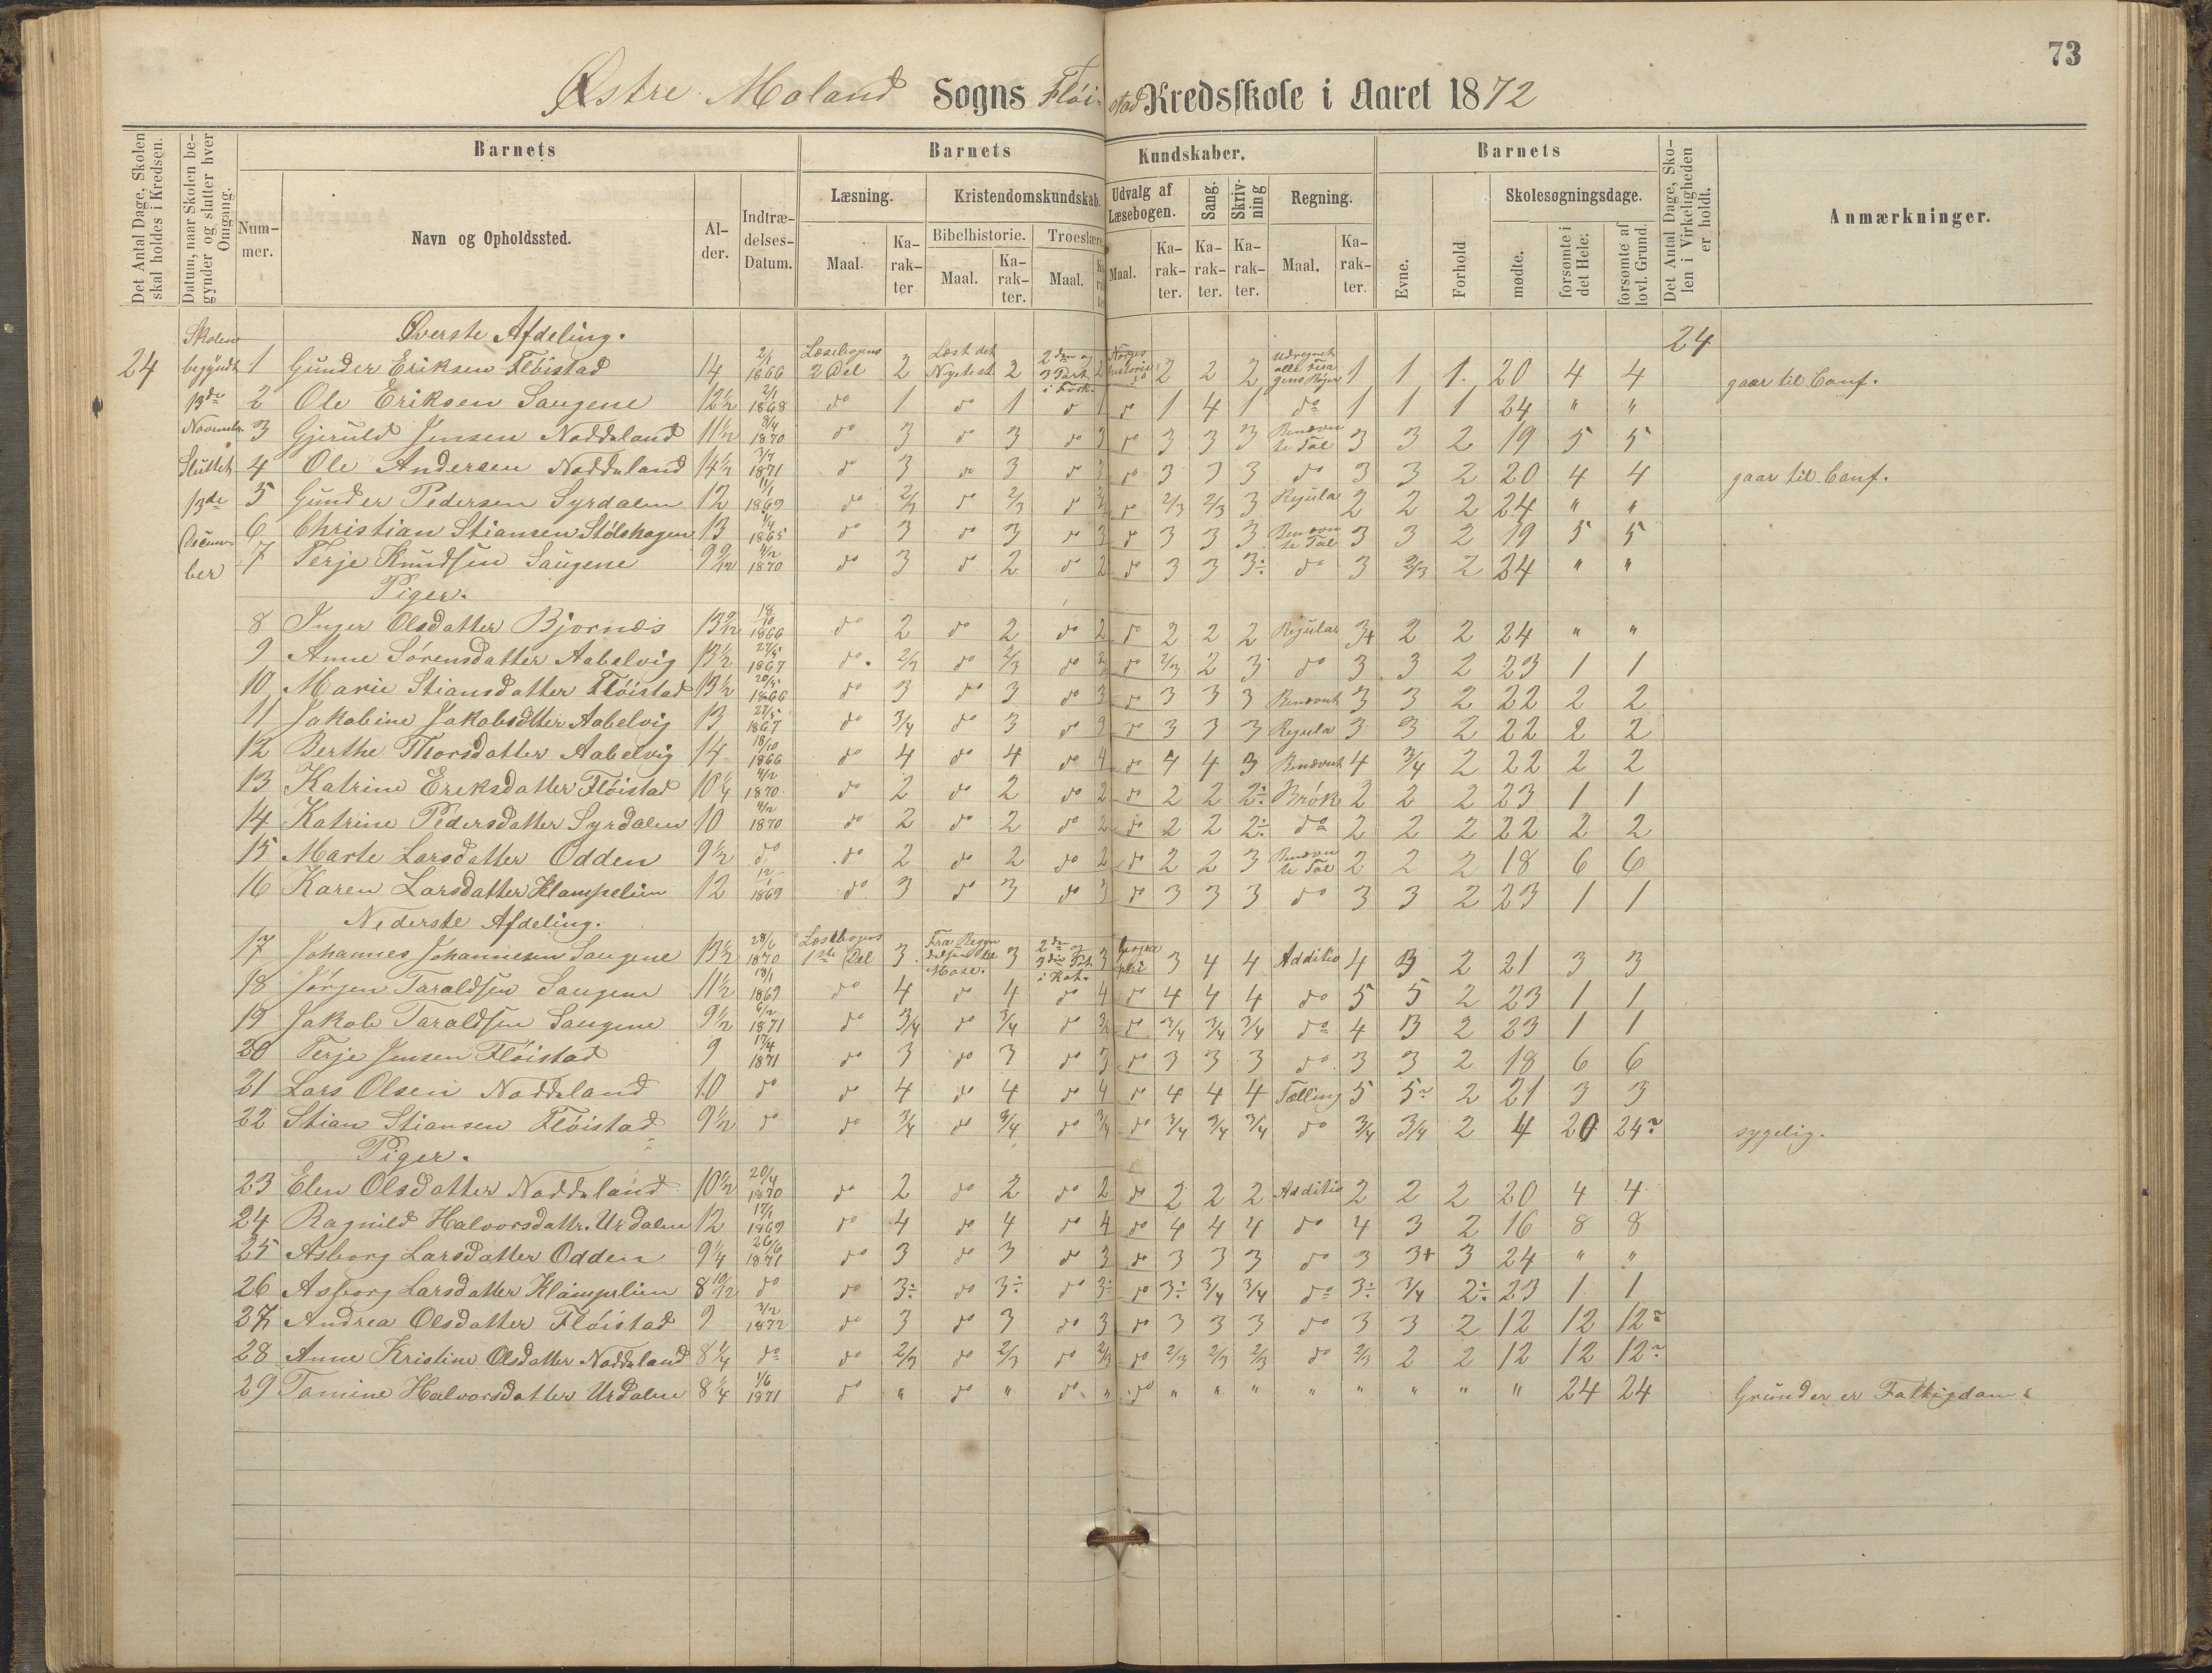 73
Østre Moland Sogns Flöi-stad Kredsskole i Aaret 1872
Det Antal Dage, Skolen skal holdes i Kredsen.
Datum, naar Skolen begynder og slutter hver Omgang.
Barnets
Nummer.
Navn og Opholdssted.
Alder.
Indtrædelses-Datum.
Barnets Kundskaber.
Læsning. Maal. Karakter
Kristendomskundskab.
Bibelhistorie. Maal. Karakter.
Troeslære. Maal.
Udvalg af Læsebogen. Maal. Karakter.
Sang. Karakter.
Skrivning Karakter.
Regning. Maal. Karakter.
Barnets
Evne.
Forhold
Skolesøgningsdage.
mødte.
forsømte i det Hele.
forsømte af lovl. Grund.
Det Antal Dage, Skolen i Virkeligheden er holdt.
Anmærkninger.
Skolen begyndt 13de November Sluttet 13de December
Øverste Afdeling.
24
24 1 Gunder Eriksen Flöistad 14 2/1 1866 Læsebogens 2 Del 2 Læst det Nytest 2 2den og 3 Part i Fork. 2 Norges historie 2 2 2 1 1 1 20 4 4 gaar til Conf.
2 Ole Eriksen Saugene 12 1/2 2/1 1868 do 1 do 1 do 1 do 1 4 1 do 1 1 1 24 " "
3 Gjeruld Jensen Noddeland 11 1/2 8/4 1870 do 3 do 3 do 3 do 3 3 3 Benævnte Tal 3 3 2 19 5 5
4 Ole Andersen Noddeland 14 1/2 3/7 1871 do 3 do 3 do 3 do 3 3 3 do 3 3 2 20 4 4 gaar til Conf.
5 Gunder Pedersen Syrdalen 12 11/1 1869 do 2/3 do 2/3 do 2/3 do 2/3 2/3 3 Regula 2 2 2 24 " "
6 Christian Stiansen Stölshagen 13 1865 do 3 do 3 do 3 do 3 3 3 Benævnte Tal 3 3 2 19 5 5
7 Terje Knudsen Saugene 9 9/12 4/2 1870 do 3 do 2 do 2 do 3 3 3÷ do 3 2/3 2 24 " "
Piger.
8 Inger Olsdatter Bjornæs 13 9/12 18/10 1866 do 2 do 2 do 2 do 2 2 2 Regular 3+ 2 2 24 " "
9 Anne Sörensdatter Aabelvig 13 1/2 27/5 1867 do 2/3 do 2/3 do 2/3 do 2/3 2 3 do 3 3 2 23 1 1
10 Marie Stiansdatter Flöistad 13 1/2 20/5 1866 do 3 do 3 do 3 do 3 3 3 Benævnt 3 3 2 22 2 2
11 Jakobine Jakobsdtter Aabelvig 13 27/5 1867 do 3/4 do 3 do 3 do 3 3 3 Regula 3 3 2 22 2 2
12 Berthe Thorsdatter Aabelvig 14 18/10 1866 do 4 do 4 do 4 do 4 4 3 Benævnt 4 3/4 2 22 2 2
13 Katrine Ereksdatter Flöistad 10 1/4 4/2 1870 do 2 do 2 do 2 do 2 2 2÷ Brök 2 2 2 23 1 1
14 Katrine Pedersdatter Syrdalen 10 4/2 1870 do 2 do 2 do 2 do 2 2 2÷ do 2 2 2 22 2 2
15 Marte Larsdatter Odden 9 1/2 do do 2 do 2 do 2 do 2 2 3 Benævnte Tal 2 2 2 18 6 6
16 Karen Larsdatter Klampelien 12 12/1 1869 do 3 do 3 do 3 do 3 3 3 do 3 3 2 23 1 1
Nederste Afdeling.
17 Johannes Johannesen Saugene 13 1/2 28/6 1870 Læsebogens 1ste Del 3 Fra Begyndelsen til Mose. 3 2den og 3die Part i Kat. 3 Geographi 3 4 4 Additio 4 3 2 21 3 3
18 Jörgen Taraldsen Saugene 11 1/2 18/1 1869 do 4 do 4 do 4 do 4 4 4 do 5 5 2 23 1 1
19 Jakob Taraldsen Saugene 9 1/2 6/2 1871 do 3/4 do 3/4 do 3/4 do 3/4 3/4 3/4 do 4 3 2 23 1 1
20 Terje Jensen Flöistad 9 17/4 1871 do 3 do 3 do 3 do 3 3 3 do 3 3 2 18 6 6
21 Lars Olsen Noddeland 10 do do 4 do 4 do 4 do 4 4 4 Tælling 5 5 2 21 3 3
22 Stian Stiansen Flöistad 9 1/2 do do 3/4 do 3/4 do 3/4 do 3/4 3/4 3/4 do 3/4 3/4 2 4 20 24 sygelig.
Piger.
23 Elen Olsdatter Noddeland 10 1/2 20/4 1870 do 2 do 2 do 2 do 2 2 2 Additio 2 2 2 20 4 4
24 Ragnild Halvorsdattr. Urdalen 12 17/1 1869 do 4 do 4 do 4 do 4 4 4 do 4 3 2 16 8 8
25 Asborg Larsdatter Odden 9 1/4 26/6 1871 do 3 do 3 do 3 do 3 3 3 do 3 3+ 3 24 " "
26 Asborg Larsdatter Klampelien 8 10/12 do do 3÷ do 3÷ do 3÷ do 3÷ 3/4 3/4 do 3÷ 3/4 2÷ 23 1 1
27 Andrea Olsdatter Flöistad 9 3/2 1872 do 3 do 3 do 3 do 3 3 3 do 3 3 2 12 12 12
28 Anne Kristine Olsdatter Noddeland 8 1/4 do do 2/3 do 2/3 do 2/3 do 2/3 2/3 2/3 do 2/3 2 2 12 12 12
29 Tomine Halvorsdatter Urdalen 8 1/4 1/6 1871 do " do " do " do " " " " " " " " 24 24 Grunden er Fattigdom